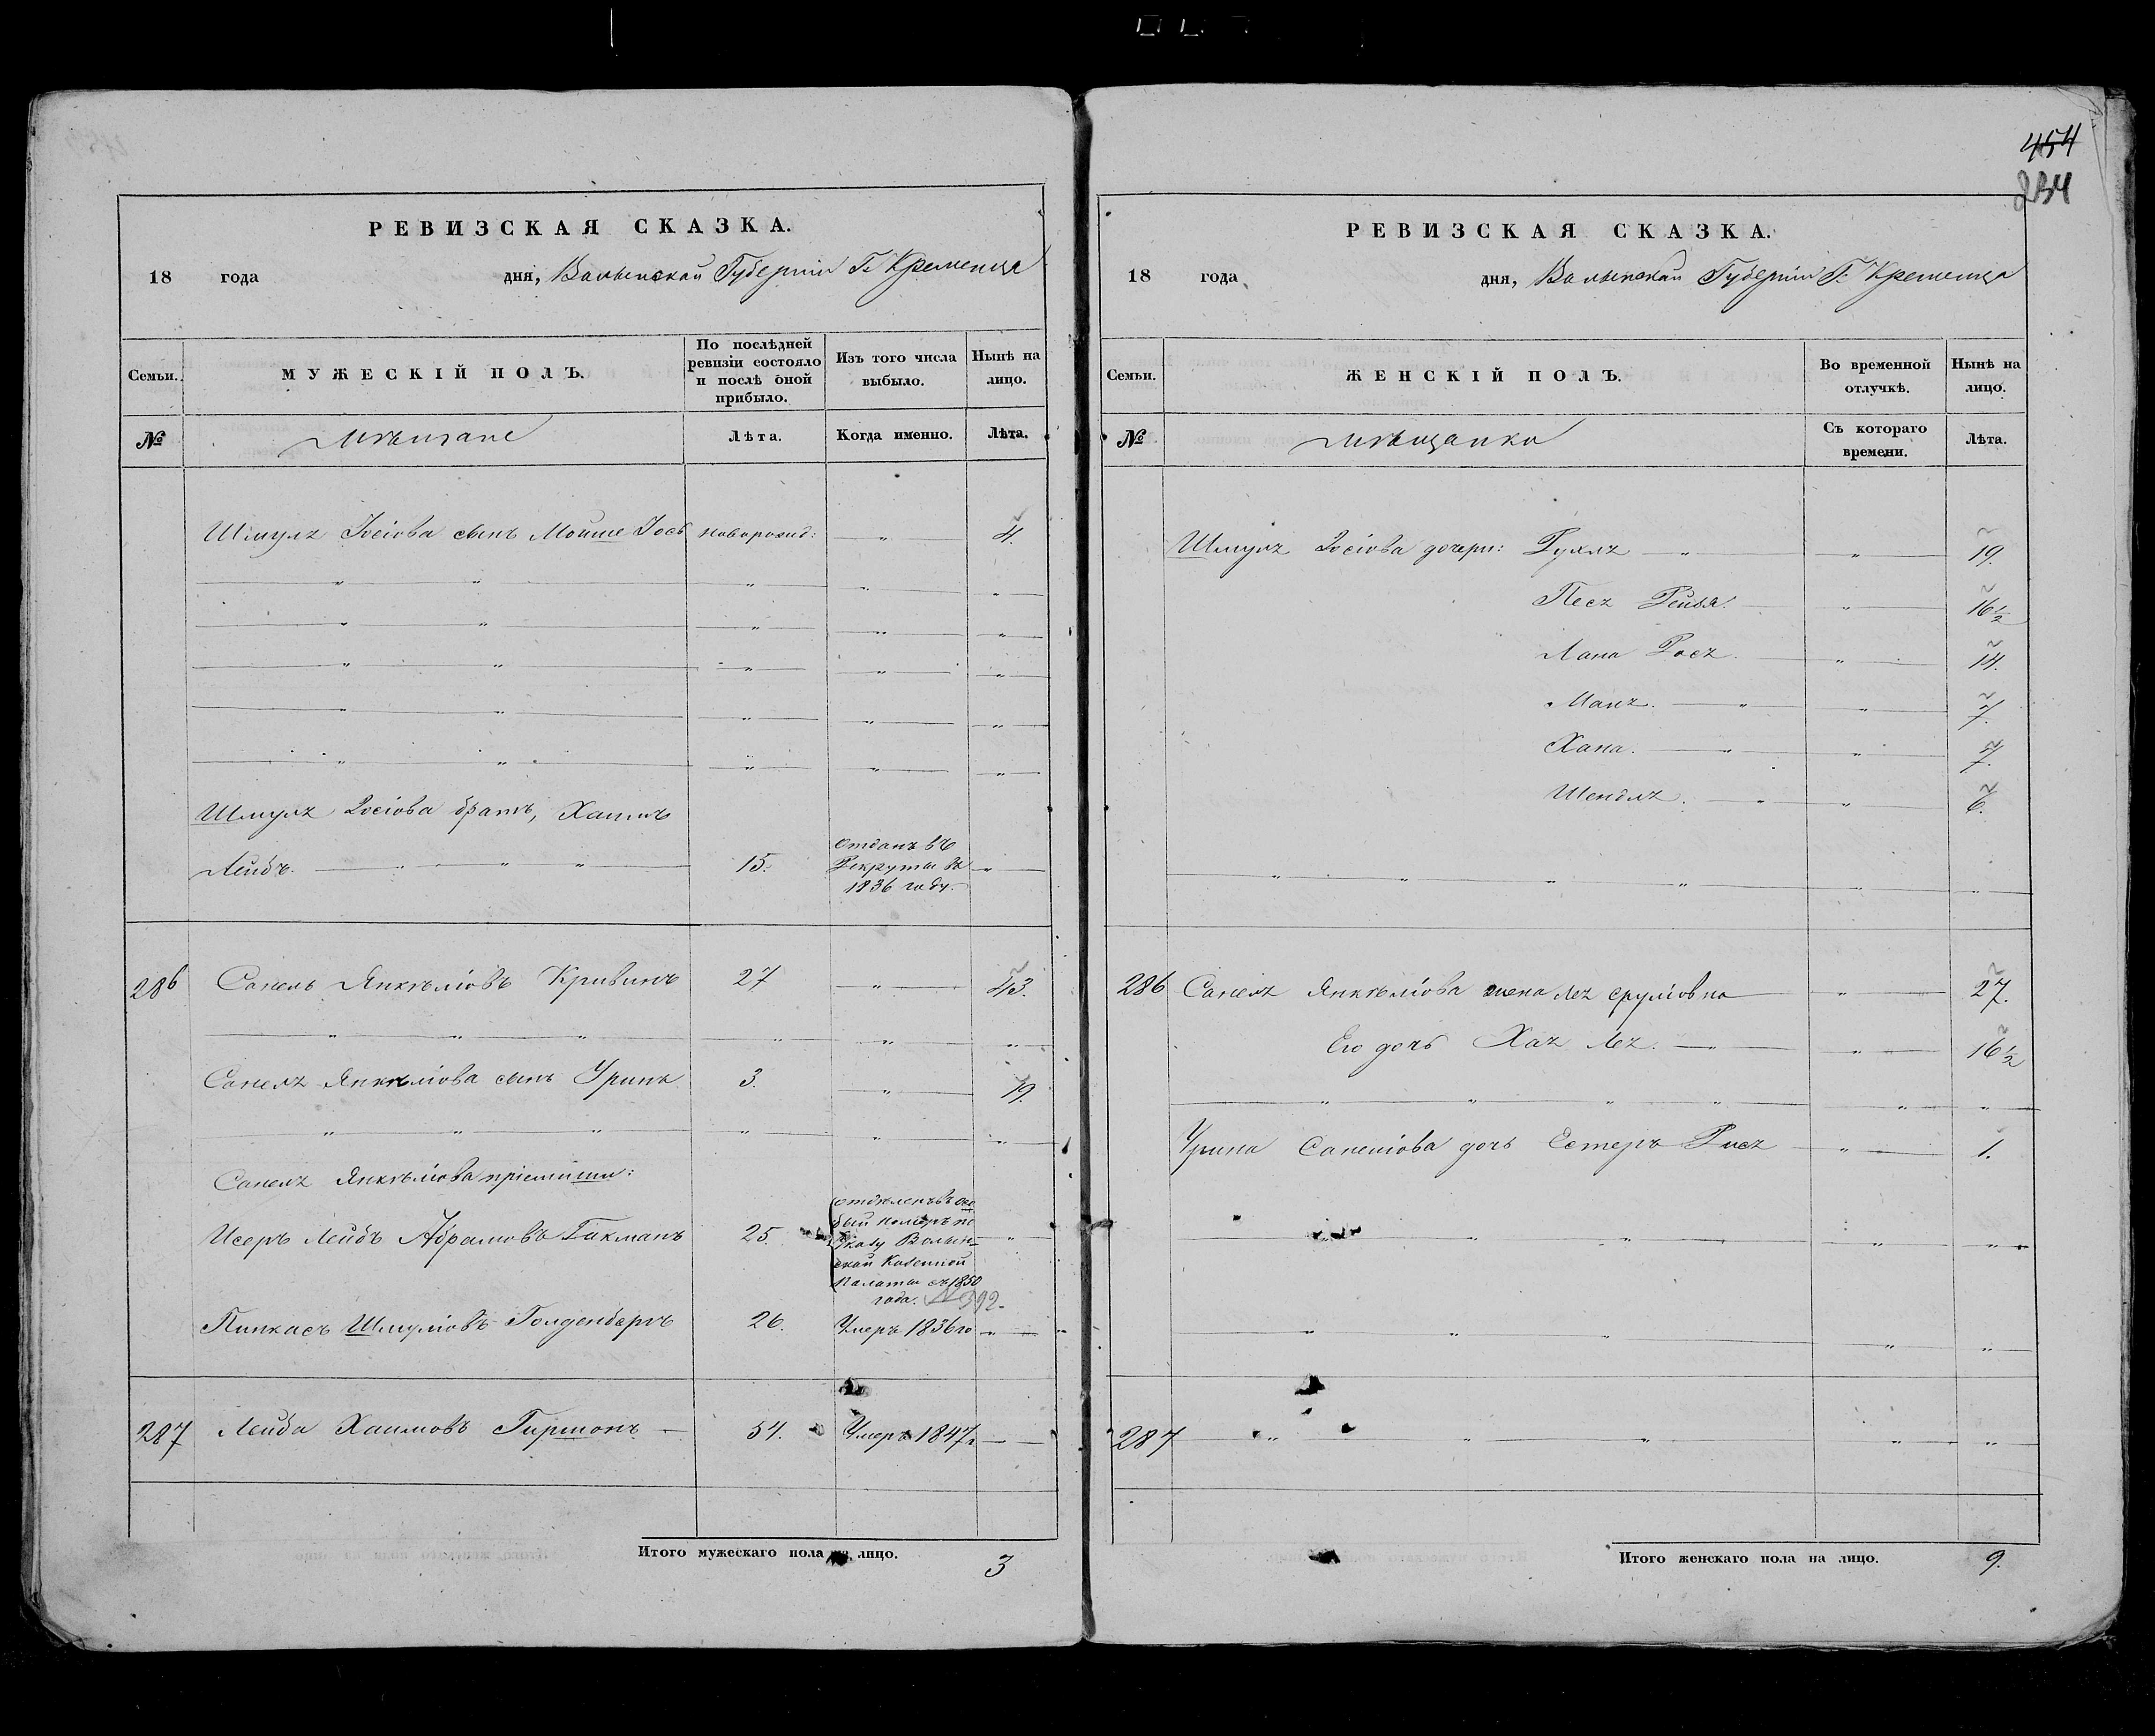 454
234
РЕВИЗСКАЯ СКАЗКА.
18 года дня, Волынской Губерніи Г. Кременца
Семьи. МУЖЕСКІЙ ПОЛЪ. По послѣдней ревизіи состояло и послѣ оной прибыло. Изъ того числа выбыло. Нынѣ на лицо.
№ Мѣщане Лѣта. Когда именно. Лѣта.
Шмуля Іосіова сынъ Мошие Іось новорожд: 4.
Шмуля Іосіова братъ, Хаимъ
Лейбъ. 15. отданъ въ
Рекруты въ
1836 году.
286 Санель Янкѣліовъ Кривинъ 27 43.
Санеля Янкѣліова сынъ Уринъ 3. 19.
Санеля Янкѣліова пріемыши:
Исеръ Лейбъ Абрамовъ Гихманъ 25. отдѣленъ въ осо
бый номеръ по
Указу Волын-
ской Казенной
Палаты съ 1850
года. № 392.
Пинкасъ Шмуліовъ Голденбергъ 26. Умеръ 1836 го
287 Лейба Хаимовъ Гиршонъ 54. Умеръ 1847 г
Итого мужескаго пола на лицо. 3
РЕВИЗСКАЯ СКАЗКА.
18 года дня, Волынской Губерніи Г. Кременца
Семьи. ЖЕНСКІЙ ПОЛЪ. Во временной отлучкѣ. Нынѣ на лицо.
№ Мѣщанки Съ котораго времени. Лѣта.
Шмуля Іосіова дочери: Рухля 19.
Песя Рейзя. 16½
Лана Рося. 14.
Маля. 7.
Хана. 7.
Шендля. 6.
286 Санеля Янкѣліова жена Лея Сруліовна 27.
Его дочь Хая Лея. 16½
Урина Санеліова дочь Естеръ Рися 1.
287
Итого женскаго пола на лицо. 9.